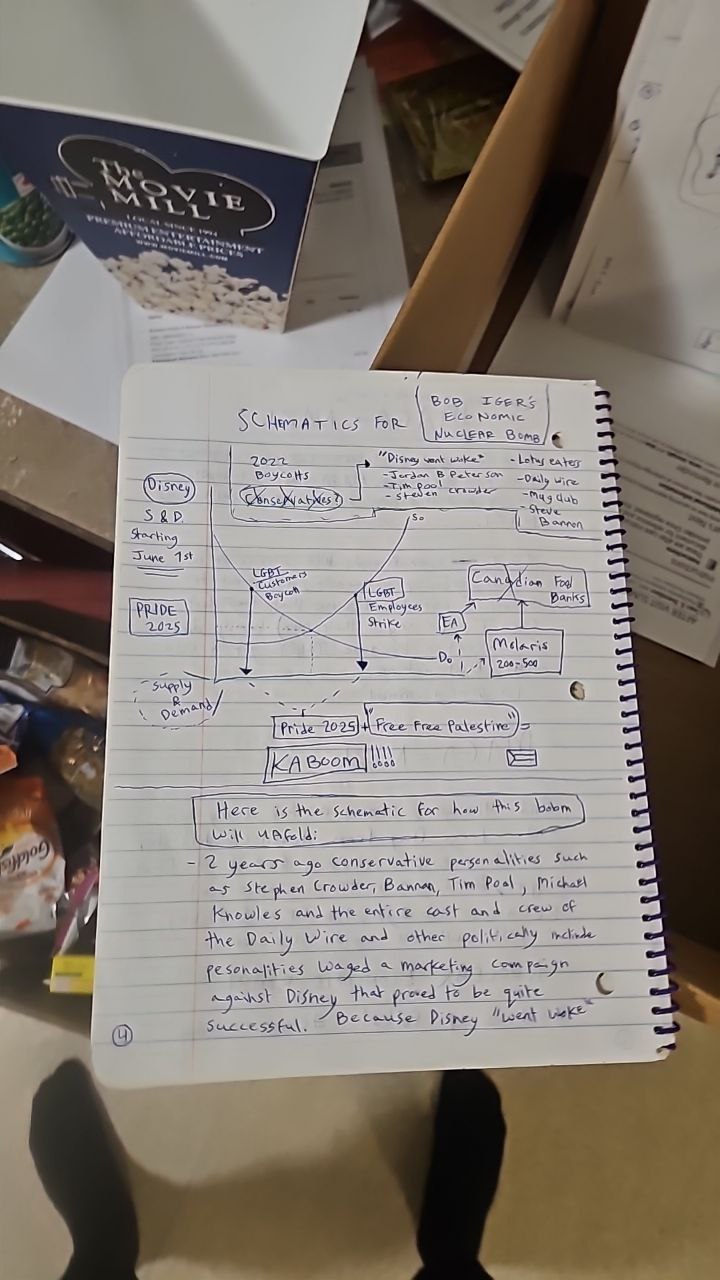 The
MOVIE
MILL
LOCAL SINCE 1994
PREMIUM ENTERTAINMENT
AFFORDABLE PRICES
www.moviemill.com
SCHEMATICS FOR
BOB IGER'S
ECONOMIC
NUCLEAR BOMB
2022
Boycotts
Conservatives?
"Disney went woke"
- Jordan B Peterson
- Tim pool
- Steven crowder
- Lotus eaters
- Daily wire
- Mug club
- Steve
Bannon
Disney
S & D.
Starting
June 1st
PRIDE
2025
Supply
&
Demand
So
LGBT
Customers
Boycott
LGBT
Employees
Strike
Do
Canadian Food
Banks
EA
Molaris
200-500
Pride 2025 + "Free Free Palestine" =
KABOOM !!!!
Here is the schematic for how this bobm
will unfold:
- 2 years ago conservative personalities such
as Stephen Crowder, Bannan, Tim Pool, Michael
Knowles and the entire cast and crew of
the Daily Wire and other politically
pesonalities waged a marketing campaign
against Disney that proved to be quite
successful. Because Disney "went woke"
4
Goldfish